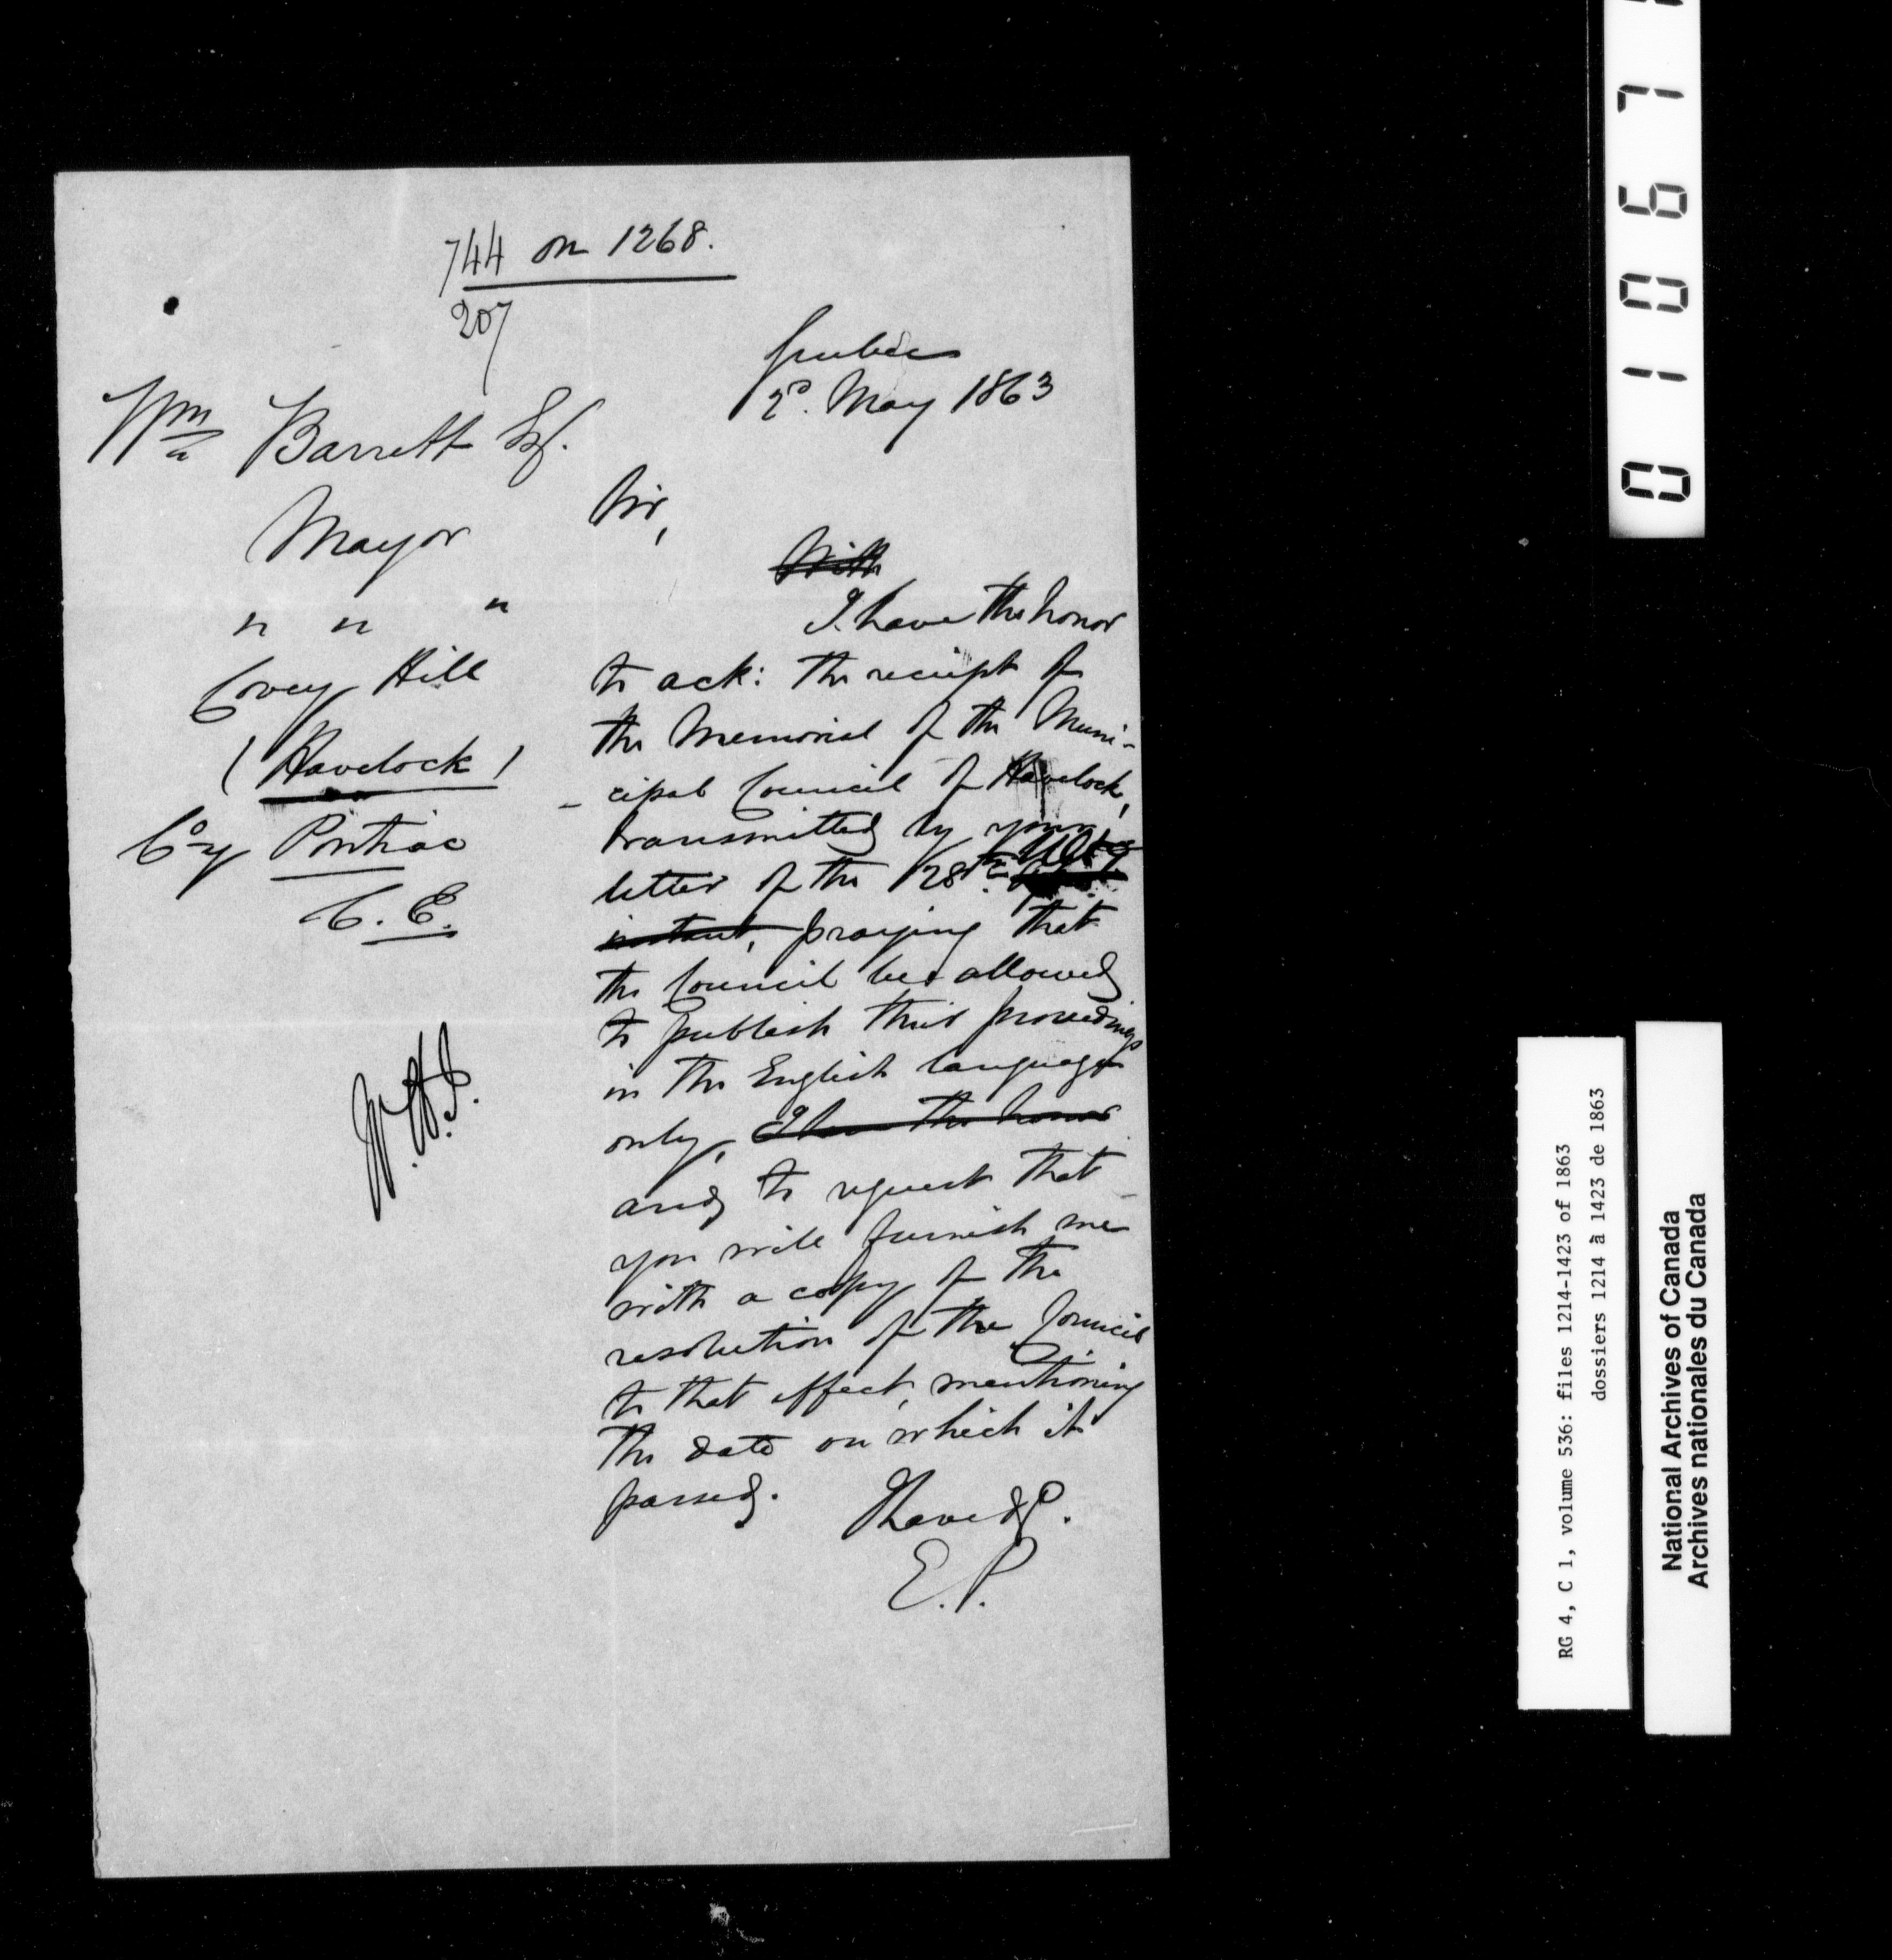 744 on 1268.
207
Quebec
2d. May 1863
Wm Barrett Esq.
Mayor
" " "
Covey Hill
(Havelock)
Coy Pontiac
C. E.
Sir,
With
I have the honor
to ack: the receipt of
the Memorial of the Muni-
-cipal Council of Havelock,
transmitted by your
letter of the 28th Ulto
instant, praying that
the Council be allowed
to publish their proceedings
in the English language
only, I have the honor
and to request that
you will furnish me
with a copy of the
resolution of the Council
to that effect, mentioning
the date on which it
passed.
I have &c.
E. P.
010671
RG 4, C 1, volume 536: files 1214-1423 of 1863
dossiers 1214 à 1423 de 1863
National Archives of Canada
Archives nationales du Canada